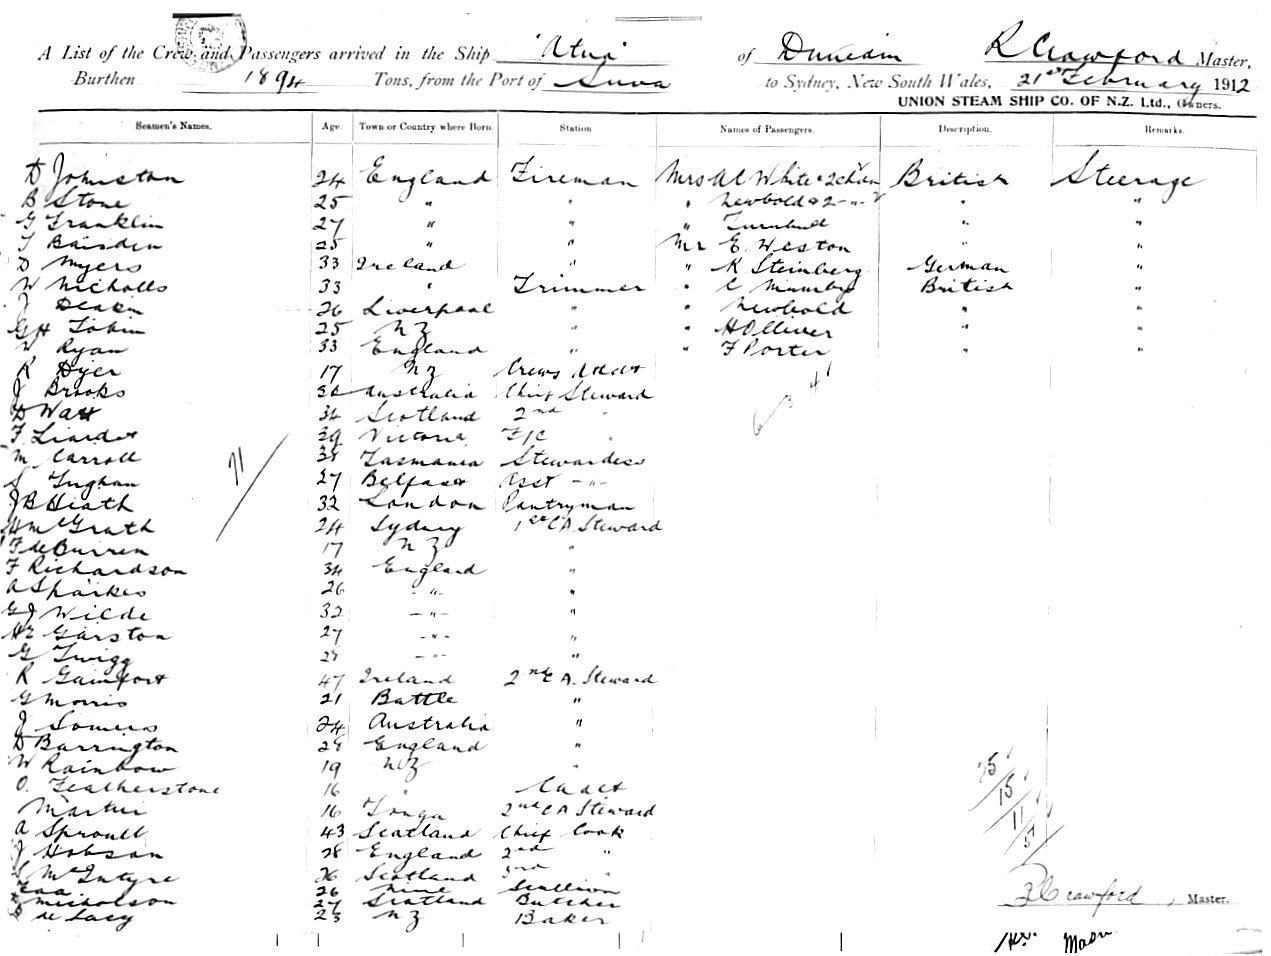 A List of the Crew and Passengers arrived in the Ship "Atua" of Dunedin R Crawford Master,
Burthen 1894 Tons, from the Port of Suva to Sydney, New South Wales, 21st February 1912
UNION STEAM SHIP CO. OF N.Z. Ltd., Owners.
Seamen's Names. Age. Town or Country where Born. Station Names of Passengers. Description. Remarks.
D Johnston 24 England Fireman Mrs A C White & 2 chdn British Steerage
B Stone 25 " " " Newbold & 2 -"- " "
G Franklin 27 " " " Turnbull " "
T Baisden 25 " " Mr E Weston " "
D Myers 33 Ireland " " K Steinberg German "
W Nicholls 33 " Trimmer " C British "
J Deakin 26 Liverpool " " Newbold " "
G H Tobin 25 N Z " " H Olliver " "
W Ryan 33 England " " F Porter " "
R Dyer 17 N Z Crews
J Brooks Australia Chief Steward
D Watt 34 Scotland 2nd "
F Liardet 39 Victoria F/C "
M Carroll Tasmania Stewardess
S 27 Belfast Asst -"-
J B Heath 32 London Pantryman
71
H McGrath 24 Sydney 1st C A Steward
F de Burren 17 N Z "
F Richardson 34 England "
A Sparkes 26 -"- "
G J Wilde 32 -"- "
H E Garston 27 -"- "
G Twigg -"- "
R Gainfort 47 Ireland 2nd C A. Steward
G Morris 21 Battle "
J Somers 24 Australia "
D Barrington 28 England "
W Rainbow 19 N Z "
O. Featherstone 16 " Cadet
Martin 16 Tonga 2nd C A Steward
A Sproull 43 Scotland Chief Cook
J Hobson 28 England 2nd "
S McIntyre 26 Scotland 3rd "
26 Niue Scullion
Nicholson 27 Scotland Butcher
de Lacy 23 N Z Baker
6 3 4
25
15
11
51
R Crawford, Master.